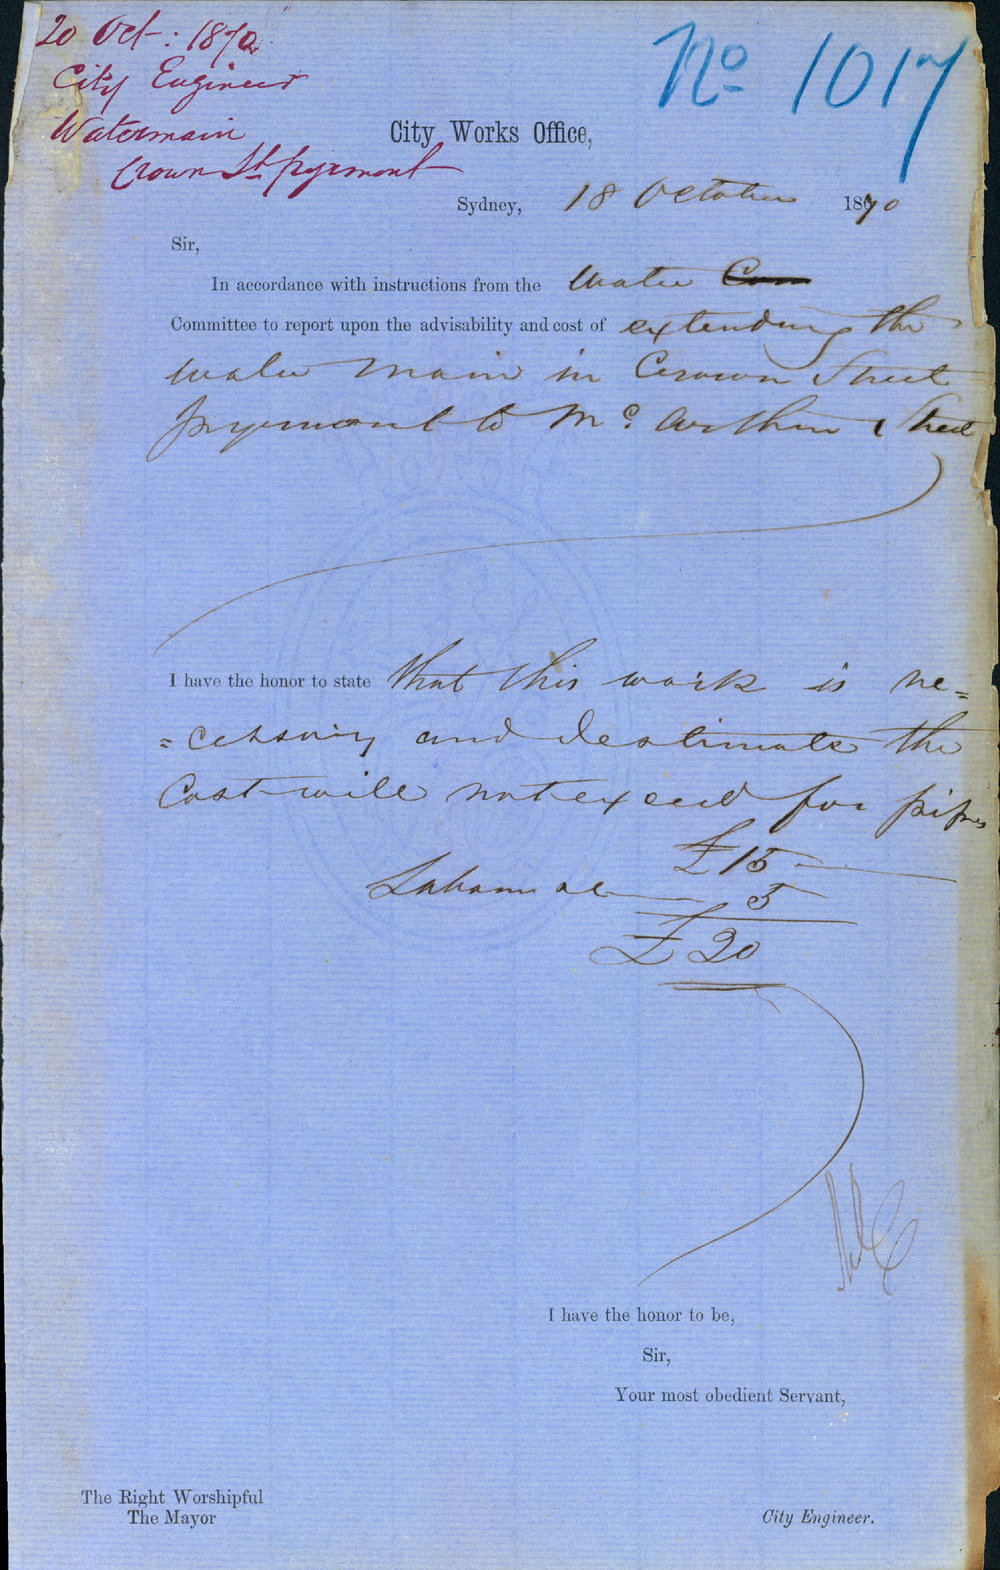 20 Oct: 1870
City Engineer
Watermain
Crown St. Pyrmont
No 1017
City Works Office,
Sydney, 18 October 1870
Sir,
In accordance with instructions from the Water Com
Committee to report upon the advisability and cost of extending the
water main in Crown Street
Pyrmont to Mc Arthur Street
I have the honor to state that this work is ne=
=cessary and I estimate the
Cost will not exceed for pipes
£15
Labour &c 5
£20
I have the honor to be,
Sir,
Your most obedient Servant,
The Right Worshipful
The Mayor
City Engineer.